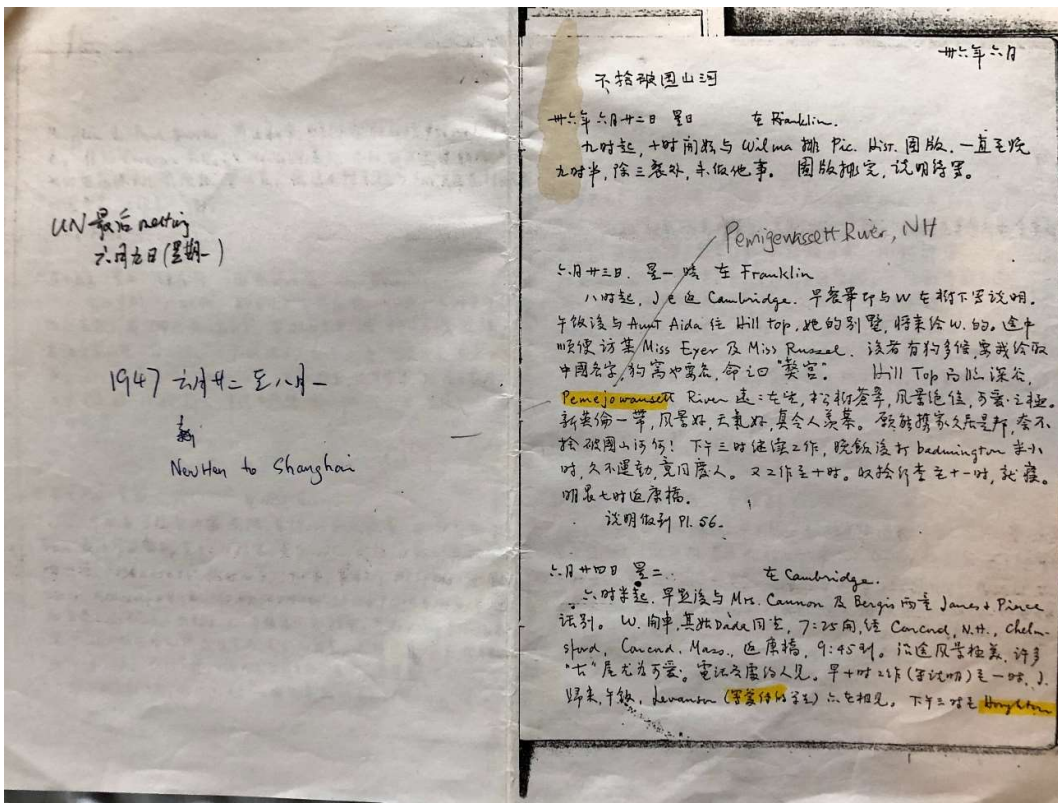 UN 最后 meeting
六月九日(星期一)
1947 六月廿二 至 八月一
New Haven to Shanghai
卅六年六月
不捨破國山河
卅六年六月廿二日 星日 在 Franklin.
九时起,十时開始与 Wilma 排 Pic. Hist. 图版,一直至晚
九时半,除三餐外,未做他事。 图版排完,说明待写。
Pemigewassett River, NH
六月廿三日. 星一 晴 在 Franklin
八时起, J 已返 Cambridge. 早餐畢即与 W 在樹下写说明.
午饭後与 Aunt Aida 往 Hill top, 她的别墅, 将来给 W. 的。途中
順便访某 Miss Eyer 及 Miss Russel. 後者有狗多條,要我给取
中國名字,狗窩也要名,命之曰 "獒宫". Hill Top 高临深谷,
Pemejowansett River 遠 在望, 松樹苍翠, 風景绝佳, 可爱之極.
新英倫一带, 風景好, 天氣好, 真令人羡慕. 顾能携家久居是邦, 奈不
捨破國山河何! 下午三时继续工作, 晚飯後打 badmington 半小
时, 久不運動, 竟 人。 又工作至十时。收拾行李至十一时, 就寢。
明晨七时返康橋.
说明做到 Pl. 56.
六月廿四日 星二. 在 Cambridge.
六时半起. 早點後与 Mrs. Cannon 及 Bergis 两童 Janes + Pierce
话别。 W. 開車, 其姑 Dada 同走, 7:25 開, 经 Concord, N.H., Chelm-
sford, Concord, Mass., 返康橋, 9:45 到。 沿途风景極美, 许多
"古" 屋尤为可爱。電话各處约人見。早十时工作(写说明)至一时, J.
歸来, 午飯, Levanson (学生) 亦在相見。下午三时至 Houghton